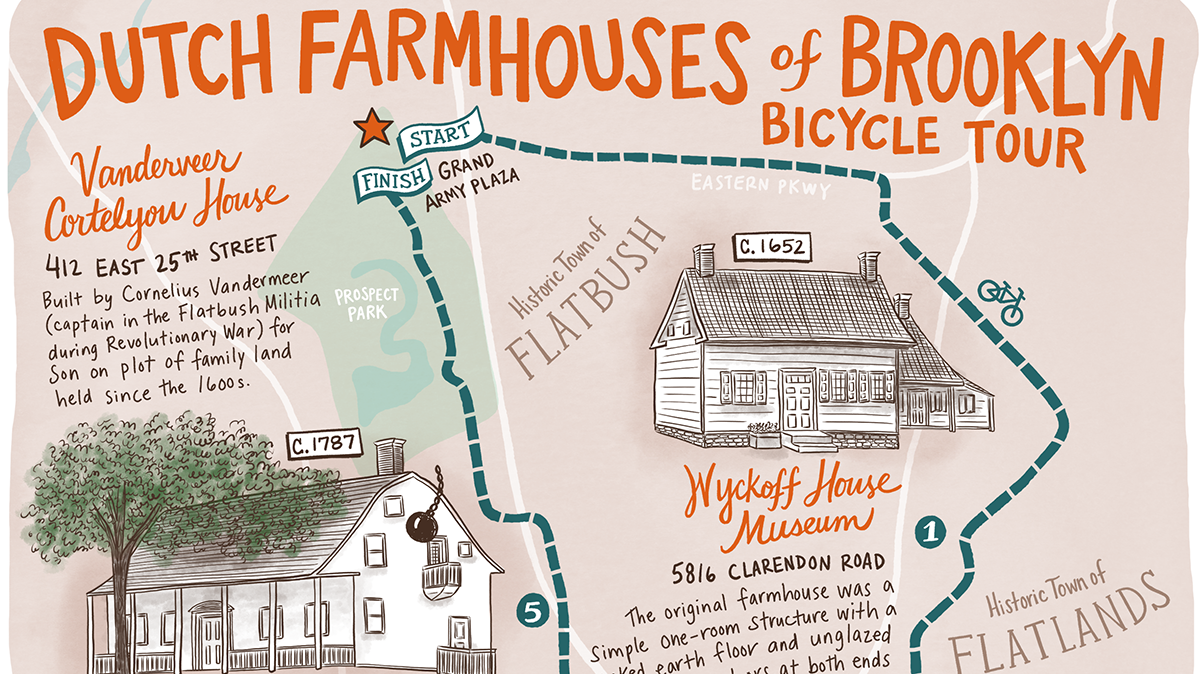 DUTCH FARMHOUSES of BROOKLYN
BICYCLE TOUR
START
FINISH
GRAND
ARMY PLAZA
EASTERN PKWY
Vanderveer
Cortelyou House
412 EAST 25TH STREET
Built by Cornelius Vandermeer
(captain in the Flatbush Militia
during Revolutionary War) for
Son on plot of family land
held since the 1600s.
PROSPECT
PARK
Historic Town of
FLATBUSH
C. 1652
C. 1787
Wyckoff House
Museum
5816 CLARENDON ROAD
The original farmhouse was a
Simple one-room structure with a
earth floor and unglazed
at both ends
1
5
Historic Town of
FLATLANDS